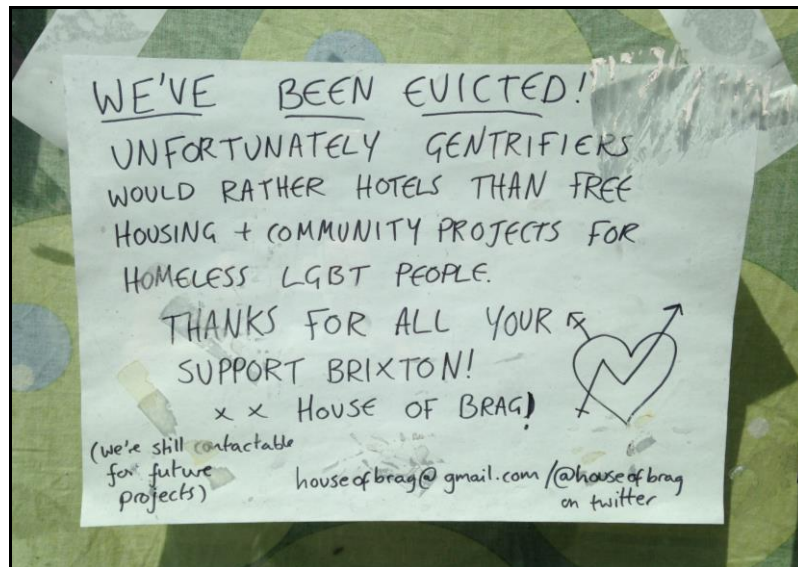 WE'VE BEEN EVICTED!
UNFORTUNATELY GENTRIFIERS
WOULD RATHER HOTELS THAN FREE
HOUSING + COMMUNITY PROJECTS FOR
HOMELESS LGBT PEOPLE.
THANKS FOR ALL YOUR
SUPPORT BRIXTON!
x x HOUSE OF BRAG!
(we're still contactable
for future
projects)
houseofbrag@gmail.com /@houseofbrag
on twitter